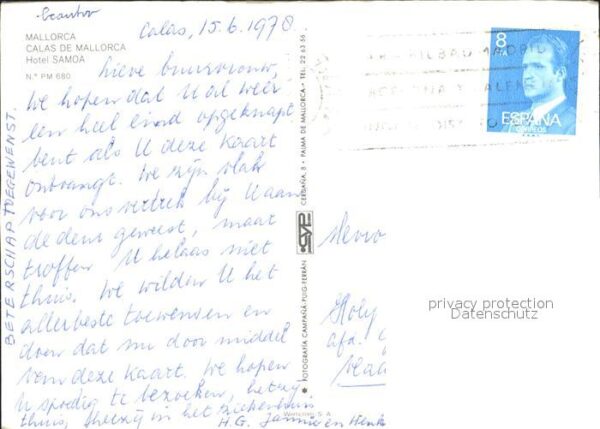 beantw
Calas, 15.6.1978
MALLORCA
CALAS DE MALLORCA
Hotel SAMOA
N.º PM 680
Lieve buurvrouw,
We hopen dat U al weer
een heel eind opgeknapt
bent als U deze kaart
ontvangt. We zijn vlak
voor ons vertrek bij U aan
de deur geweest, maar
troffen U helaas niet
thuis. We wilden U het
allerbeste toewensen en
doen dat nu door middel
van deze kaart. We hopen
U spoedig te bezoeken, hetzij
thuis, hetzij in het ziekenhuis
H.G. Jannie en Henk
BETERSCHAP TOEGEWENST.
FOTOGRAFIA CAMPAÑA-PUIG-FERRÁN
CYP
CERDAÑA, 8 - PALMA DE MALLORCA - TEL. 22 63 56
8
ESPAÑA
CORREOS
BILBAO MADRID
Mevro
Holy
afd.
privacy protection
Datenschutz